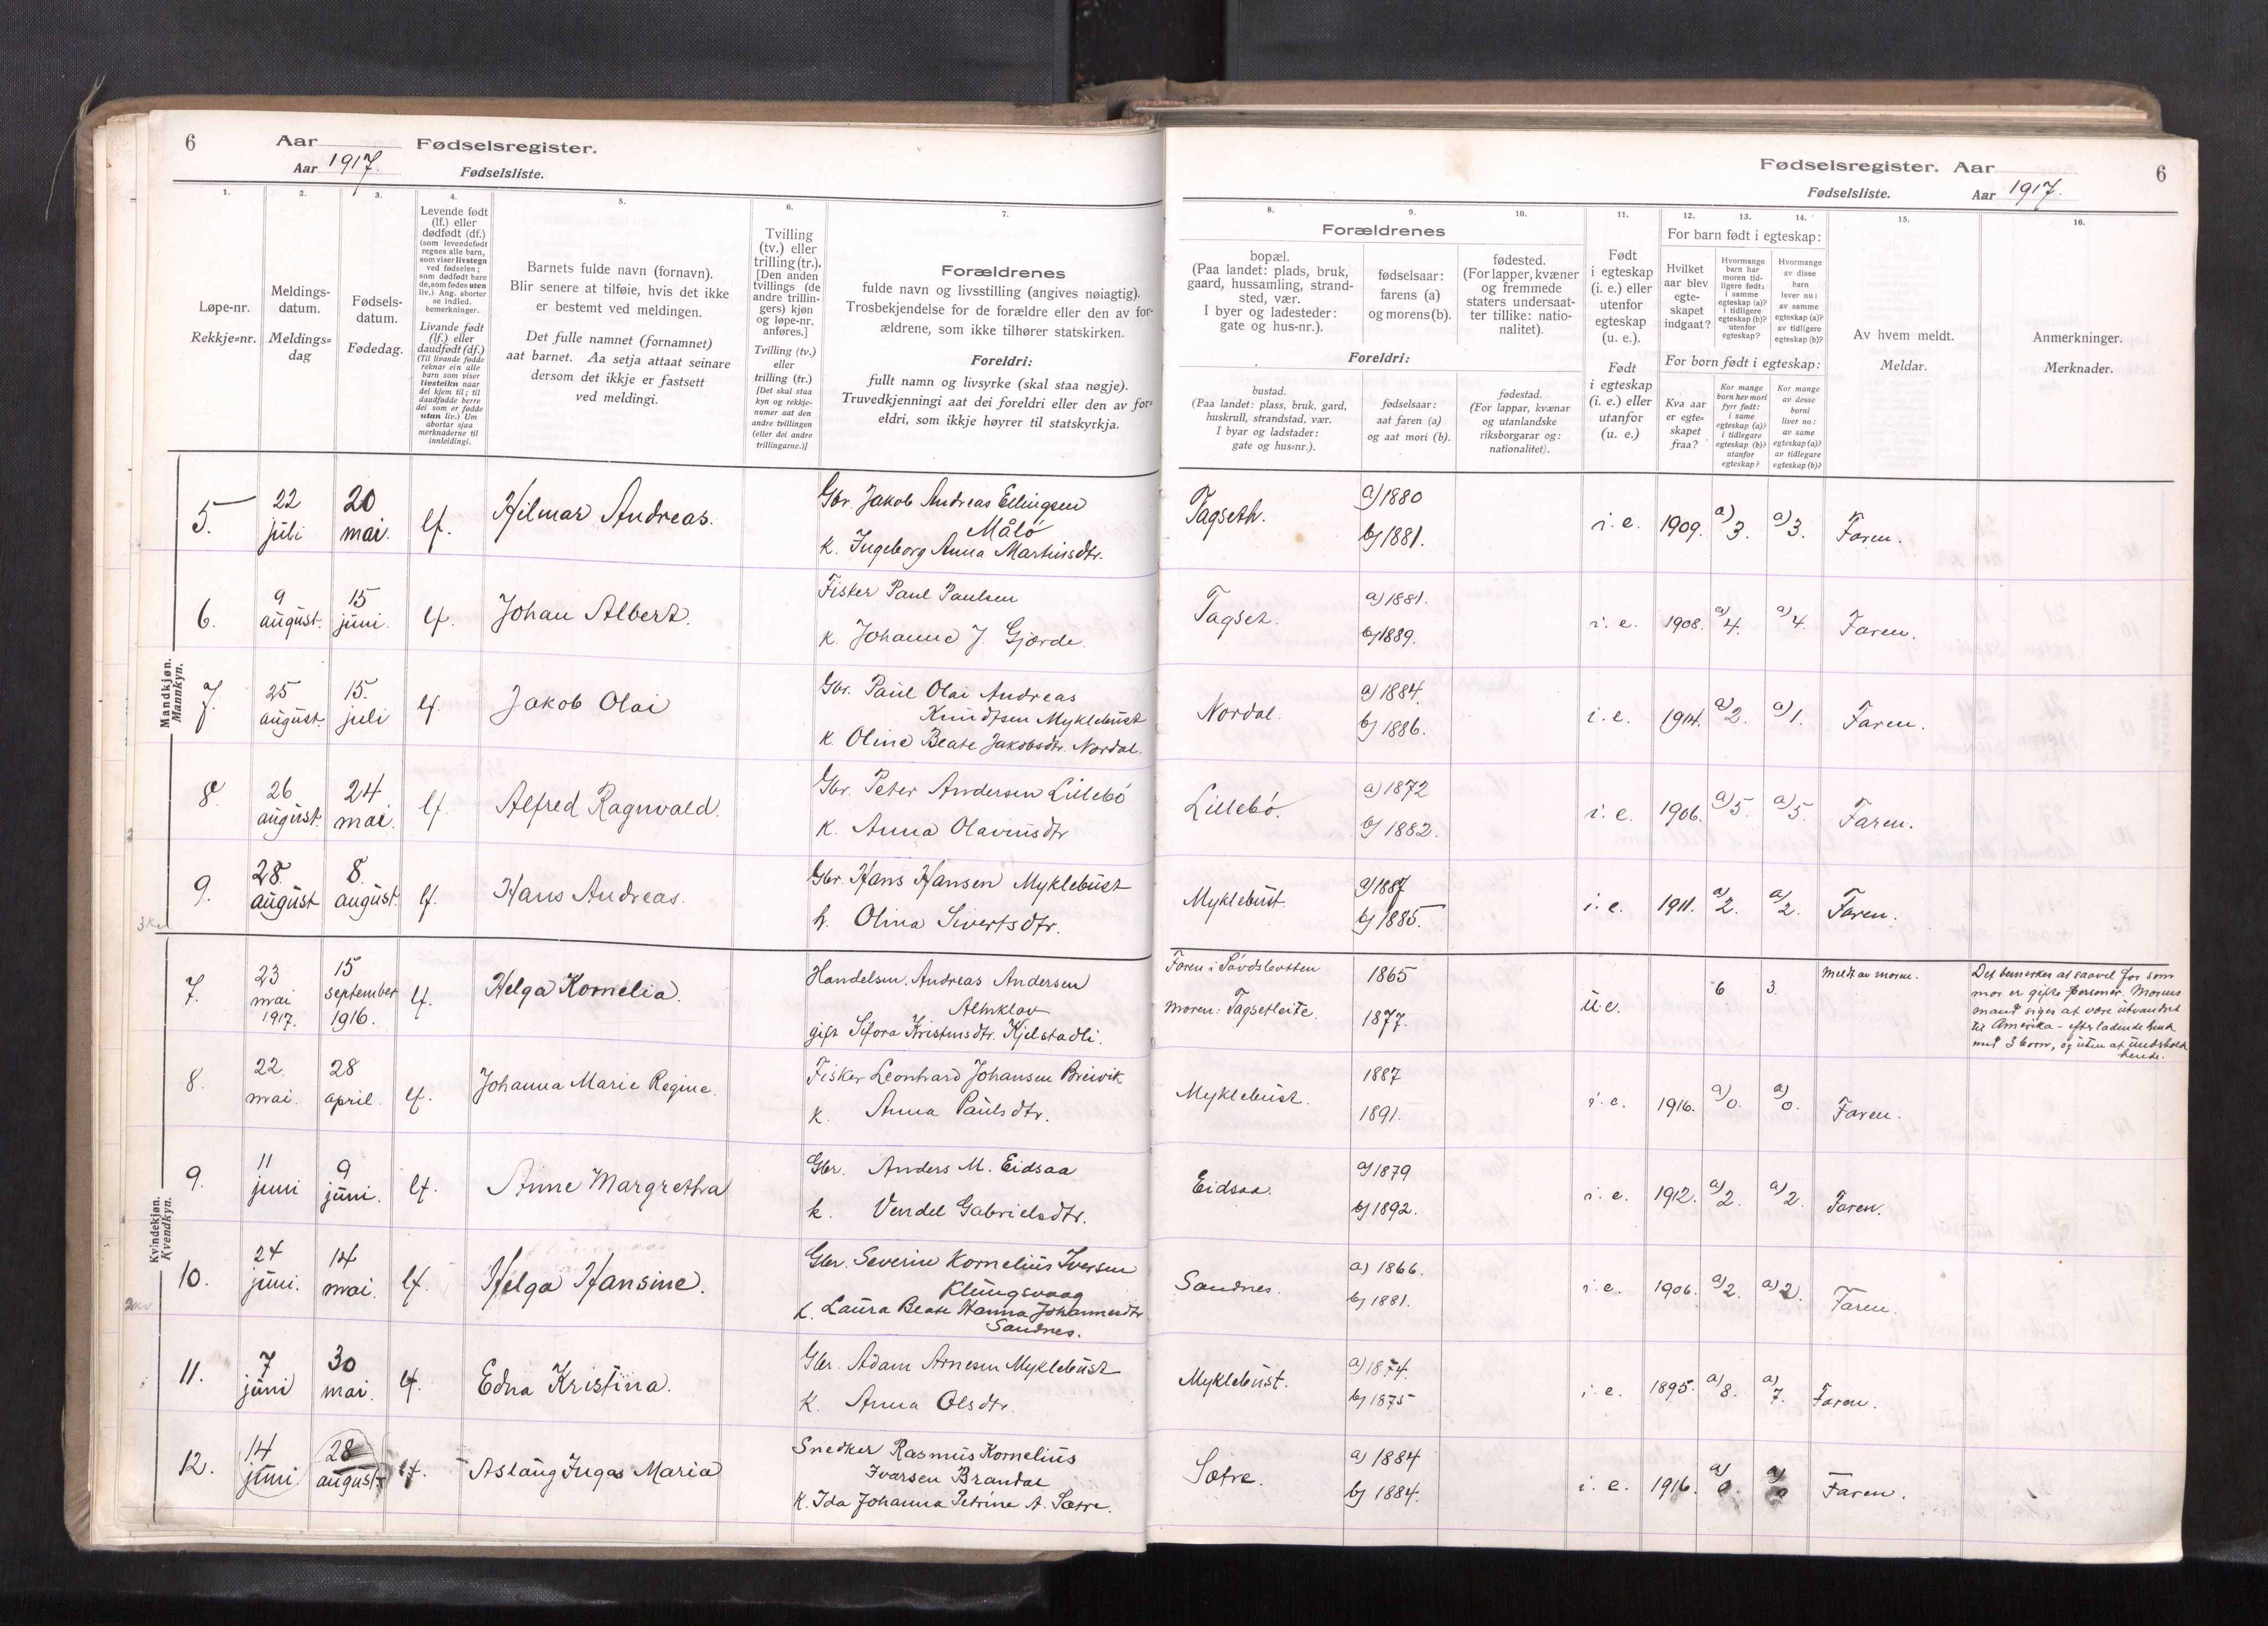 6 Aar Fødselsregister.
Aar 1917. Fødselsliste.
1.
2.
3.
4.
5.
6.
7.
Løpe-nr.
Rekkje=nr.
Meldings-
datum.
Meldings=
dag
Fødsels-
datum.
Fødedag.
Levende født
(lf.) eller
dødfødt (df.)
(som levendefødt
regnes alle barn,
som viser livstegn
ved fødselen;
som dødfødt bare
de, som fødes uten
liv.) Ang. aborter
se indled.
bemerkninger.
Livande født
(lf.) eller
daudfødt (df.)
(Til livande fødde
reknar ein alle
barn som viser
livsteikn naar
dei kjem til; til
daudfødde berre
dei som er fødde
utan liv.) Um
abortar sjaa
merknaderne til
innleidingi.
Barnets fulde navn (fornavn).
Blir senere at tilføie, hvis det ikke
er bestemt ved meldingen.
Det fulle namnet (fornamnet)
aat barnet. Aa setja attaat seinare
dersom det ikkje er fastsett
ved meldingi.
Tvilling
(tv.) eller
trilling (tr.).
[Den anden
tvillings (de
andre trillin-
gers) kjøn
og løpe-nr.
anføres.]
Tvilling (tv.)
eller
trilling (tr.)
[Det skal staa
kyn og rekkje-
numer aat den
andre tvillingen
(eller dei andre
trillingarne.)]
Forældrenes
fulde navn og livsstilling (angives nøiagtig).
Trosbekjendelse for de forældre eller den av for-
ældrene, som ikke tilhører statskirken.
Foreldri:
fullt namn og livsyrke (skal staa nøgje).
Truvedkjenningi aat dei foreldri eller den av for=
eldri, som ikkje høyrer til statskyrkja.
Mandkjøn.
Mannkyn.
5. 22 juli 20 mai. lf. Hilmar Andreas. Gbr. Jakob Andreas Ellingsen
Måló
k. Ingeborg Anna Martinsdtr.
6. 9 august. 15 juni. lf. Johan Albert. Fisker Paul Paulsen
k. Johanne J. Gjørde.
7. 25 august. 15. juli lf. Jakob Olai Gbr. Paul Olai Andreas
Knudtsen Myklebust
k. Oline Beate Jakobsdtr. Nordal.
8. 26 august. 24 mai. lf. Alfred Ragnvald. Gbr. Peter Andersen Lillebó
k. Anna Olavusdtr
9. 28. august 8. august. lf. Hans Andreas. Gbr. Hans Hansen Myklebust
h. Olina Sivertsdtr.
Kvindekjøn.
Kvendkyn.
7. 23 mai 1917. 15 september 1916. lf. Helga Kornelia. Handelsm. Andreas Andersen
Almklov
gift Sefora Kristensdtr. Kjelstadli.
8. 22. mai. 28 april. lf. Johanna Marie Regine. Fisker Leonhard Johansen Breivik
k. Anna Paulsdtr.
9. 11 juni 9 juni. lf. Anne Margretha Gbr. Anders M. Eidsaa
k. Vendel Gabrielsdtr.
10. 24 juni. 14 mai. lf. Helga Hansine. Gbr. Severin Kornelius Iversen
Klungsvaag
k. Laura Beate Hanna Johannesdtr
Sandnes.
11. 7 juni 30 mai. lf. Edna Kristina. Gbr. Adam Arnesen Myklebust
k. Anna Olsdtr.
12. 14 juni 28 august lf. Aslaug Ingas Maria Snedker Rasmus Kornelius
Ivarsen Brandal
k. Ida Johanna Petrine A. Sætre.
Fødselsregister. Aar 6
Fødselsliste. Aar 1917.
8.
9.
10.
11.
12.
13.
14.
15.
16.
Forældrenes
bopæl.
(Paa landet: plads, bruk,
gaard, hussamling, strand-
sted, vær.
I byer og ladesteder:
gate og hus-nr.).
fødselsaar:
farens (a)
og morens (b).
fødested.
(For lapper, kvæner
og fremmede
staters undersaat-
ter tillike: natio-
nalitet).
Foreldri:
bustad.
(Paa landet: plass, bruk, gard,
huskrull, strandstad, vær.
I byar og ladstader:
gate og hus=nr.).
fødselsaar:
aat faren (a)
og aat mori (b).
fødestad.
(For lappar, kvænar
og utanlandske
riksborgarar og:
nationalitet).
Født
i egteskap
(i. e.) eller
utenfor
egteskap
(u. e.).
Født
i egteskap
(i. e.) eller
utanfor
(u. e.)
For barn født i egteskap:
Hvilket
aar blev
egte-
skapet
indgaat?
Hvormange
barn har
moren tid-
ligere født:
i samme
egteskap (a)?
i tidligere
egteskap (b)?
utenfor
egteskap?
Hvormange
av disse
barn
lever nu:
av samme
egteskap (a)?
av tidligere
egteskap (b)?
For born født i egteskap:
Kva aar
er egte=
skapet
fraa?
Kor mange
born hev mori
fyrr født:
i same
egteskap (a)?
i tidlegare
egteskap (b)?
utanfor
egteskap?
Kor mange
av desse
borni
liver no:
av same
egteskap (a)?
av tidlegare
egteskap (b)?
Av hvem meldt.
Meldar.
Anmerkninger.
Merknader.
Tagseth. a) 1880 b) 1881. i. e. 1909. a) 3. a) 3. Faren.
Tagset. a) 1881. b) 1889. i. e. 1908. a) 4. a) 4. Faren.
Nordal. a) 1884. b) 1886. i. e. 1914. a) 2. a) 1. Faren.
Lillebó. a) 1872 b) 1882. i. e. 1906. a) 5 a) 5. Faren.
Myklebust. a) 1887 b) 1885. i. e. 1911. a) 2. a) 2. Faren.
Faren i
moren: Tagsetleite. 1865 1877. u.e. 6. 3. Meldt av moren.
Det bemerkes at saavel far som
mor er gifte personer. Morens
mand siges at være utvandret
til Amerika - efterladende
med 3 born, og uten at underholde
hende.
Myklebust. 1887 1891. i. e. 1916. a) 0. a) 0. Faren.
Eidsaa. a) 1879 b) 1892. i. e. 1912. a) 2. a) 2. Faren.
Sandnes. a) 1866. b) 1881. i. e. 1906. a) 2. a) 2. Faren.
Myklebust. a) 1874. b) 1875 i. e. 1895. a) 8. a) 7. Faren.
Sætre. a) 1884 b) 1884. i. e. 1916. a) 0. a) 0 Faren.